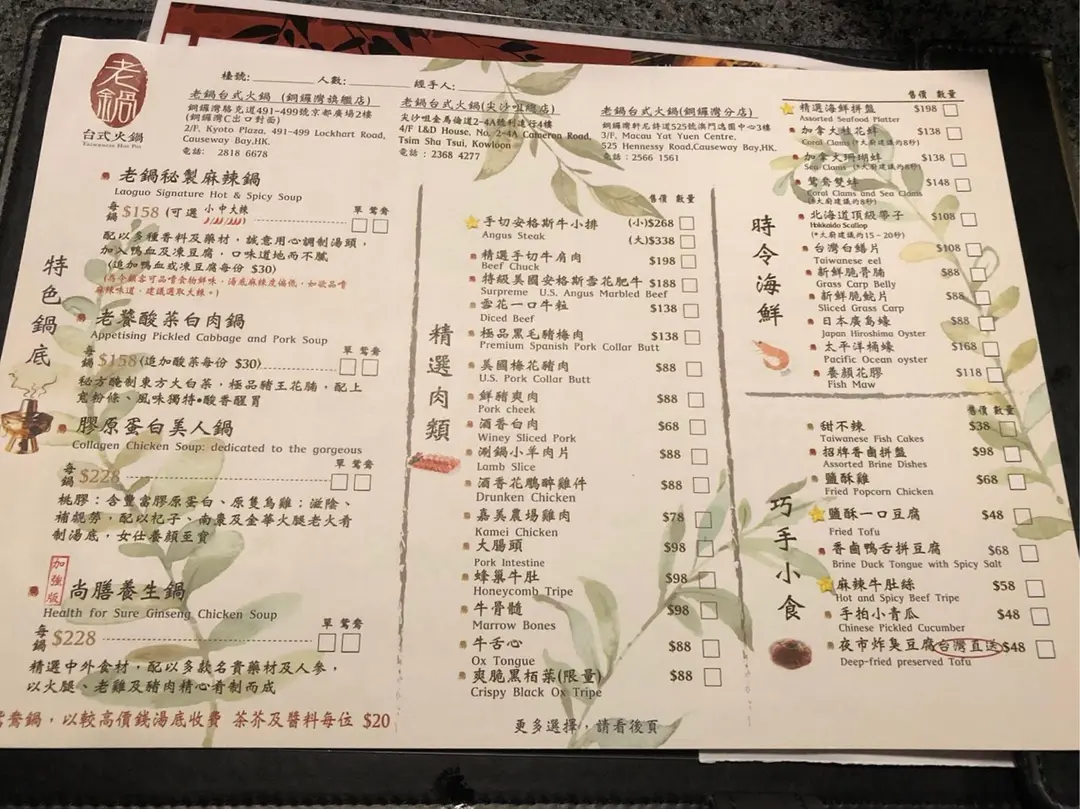 老鍋
台式火鍋
Taiwanese Hot Pot
檯號:________ 人數:________ 經手人:________
老鍋台式火鍋 (銅鑼灣旗艦店)
銅鑼灣駱克道491-499號京都廣場2樓
(銅鑼灣C出口對面)
2/F, Kyoto Plaza, 491-499 Lockhart Road,
Causeway Bay,HK.
電話: 2818 6678
老鍋台式火鍋(尖沙咀總店)
尖沙咀金馬倫道2-4A號利達行4樓
4/F L&D House, No. 2-4A Cameron Road,
Tsim Sha Tsui, Kowloon
電話:2368 4277
老鍋台式火鍋(銅鑼灣分店)
銅鑼灣軒尼詩道525號澳門逸園中心3樓
3/F, Macau Yat Yuen Centre,
525 Hennessy Road,Causeway Bay,HK.
電話:2566 1561
特色鍋底
老鍋秘製麻辣鍋
Laoguo Signature Hot & Spicy Soup
每鍋 $158 (可選 小 中 大辣) 單 鴛鴦
配以多種香料及藥材,誠意用心調制湯頭,
加入鴨血及凍豆腐,口味道地而不膩
(追加鴨血或凍豆腐每份 $30)
(為令顧客可品嚐食物鮮味,湯底麻辣度偏低,如欲品嚐
麻辣味道,建議選取大辣。)
老饕酸菜白肉鍋
Appetising Pickled Cabbage and Pork Soup
每鍋 $158 (追加酸菜每份 $30) 單 鴛鴦
秘方醃制東方大白菜,極品豬王花腩,配上
寬粉條、風味獨特•酸香醒胃
膠原蛋白美人鍋
Collagen Chicken Soup: dedicated to the gorgeous
每鍋 $228 單 鴛鴦
桃膠:含豐富膠原蛋白、原隻烏雞:滋陰、
補虧勞,配以杞子、南棗及金華火腿老火肴
制湯底,女仕養顏至寶
加強版
尚膳養生鍋
Health for Sure Ginseng Chicken Soup
每鍋 $228 單 鴛鴦
精選中外食材,配以多款名貴藥材及人參,
以火腿、老雞及豬肉精心肴制而成
鴛鴦鍋,以較高價錢湯底收費 茶芥及醬料每位 $20
精選肉類
售價 數量
手切安格斯牛小排 (小)$268
Angus Steak (大)$338
精選手切牛肩肉 $198
Beef Chuck
特級美國安格斯雪花肥牛 $188
Surpreme U.S. Angus Marbled Beef
雪花一口牛粒 $138
Diced Beef
極品黑毛豬梅肉 $138
Premium Spanish Pork Collar Butt
美國梅花豬肉 $88
U.S. Pork Collar Butt
鮮豬爽肉 $88
Pork cheek
酒香白肉 $68
Winey Sliced Pork
涮鍋小羊肉片 $88
Lamb Slice
酒香花鵰醉雞件 $88
Drunken Chicken
嘉美農場雞肉 $78
Kamei Chicken
大腸頭 $98
Pork Intestine
蜂巢牛肚 $98
Honeycomb Tripe
牛骨髓 $98
Marrow Bones
牛舌心 $88
Ox Tongue
爽脆黑栢葉(限量) $88
Crispy Black Ox Tripe
更多選擇,請看後頁
時令海鮮
售價 數量
精選海鮮拼盤 $198
Assorted Seafood Platter
加拿大桂花蚌 $138
Coral Clams (*大廚建議灼8秒)
加拿大珊瑚蚌 $138
Sea Clams (*大廚建議灼8秒)
鴛鴦雙蚌 $148
Coral Clams and Sea Clams
(*大廚建議灼8秒)
北海道頂級帶子 $108
Hokkaido Scallop
(*大廚建議灼15-20秒)
台灣白鱔片 $108
Taiwanese eel
新鮮脆骨腩 $88
Grass Carp Belly
新鮮脆鯇片 $88
Sliced Grass Carp
日本廣島蠔 $88
Japan Hiroshima Oyster
太平洋桶蠔 $168
Pacific Ocean oyster
養顏花膠 $118
Fish Maw
巧手小食
售價 數量
甜不辣 $38
Taiwanese Fish Cakes
招牌香鹵拼盤 $98
Assorted Brine Dishes
鹽酥雞 $68
Fried Popcorn Chicken
鹽酥一口豆腐 $48
Fried Tofu
香鹵鴨舌拼豆腐 $68
Brine Duck Tongue with Spicy Salt
麻辣牛肚絲 $58
Hot and Spicy Beef Tripe
手拍小青瓜 $48
Chinese Pickled Cucumber
夜市炸臭豆腐 台灣直送 $48
Deep-fried preserved Tofu